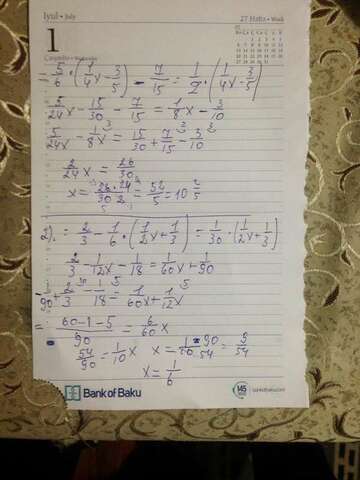 İyul • July
27 Həftə • Week
1
Çərşənbə • Wednesday
= 5/6 · (1/4x - 3/5) - 7/15 = 1/2 · (1/4x - 3/5)
5/24x - 15/30 - 7/15 = 1/8x - 3/10
5/24x - 1/8x = 15/30 + 7/15 - 3/10
2/24x = 26/30
x = 26/30 · 24/2 = 52/5 = 10 2/5
2). = 2/3 - 1/6 · (1/2x + 1/3) = 1/30 · (1/2x + 1/3)
2/3 - 1/12x - 1/18 = 1/60x + 1/90
-1/90 + 2/3 - 1/18 = 1/60x + 1/12x
= 60-1-5/90 = 6/60x
54/90 = 1/10x x = 1*90/10 54 = 9/54
x = 1/6
Bank of Baku
145